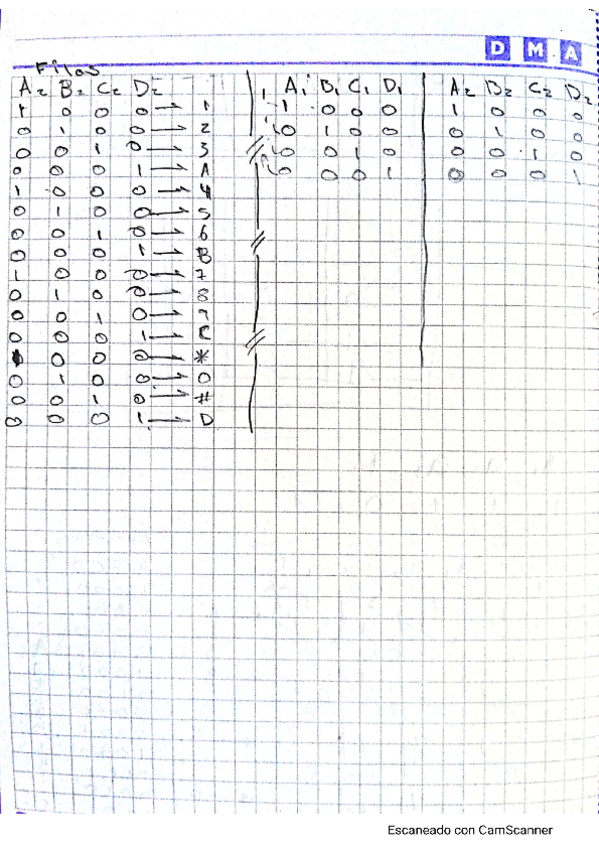 D M A
Filas
A₂ B₂ C₂ D₂ A₁ B₁ C₁ D₁ A₂ B₂ C₂ D₂
1 0 0 0 → 1 1 0 0 0 1 0 0 0
0 1 0 0 → 2 0 1 0 0 0 1 0 0
0 0 1 0 → 3 0 0 1 0 0 0 1 0
0 0 0 1 → A 0 0 0 1 0 0 0 1
1 0 0 0 → 4
0 1 0 0 → 5
0 0 1 0 → 6
0 0 0 1 → B
1 0 0 0 → 7
0 1 0 0 → 8
0 0 1 0 → 9
0 0 0 1 → C
0 0 0 → *
0 1 0 0 → 0
0 0 1 0 → #
0 0 0 1 → D
Escaneado con CamScanner